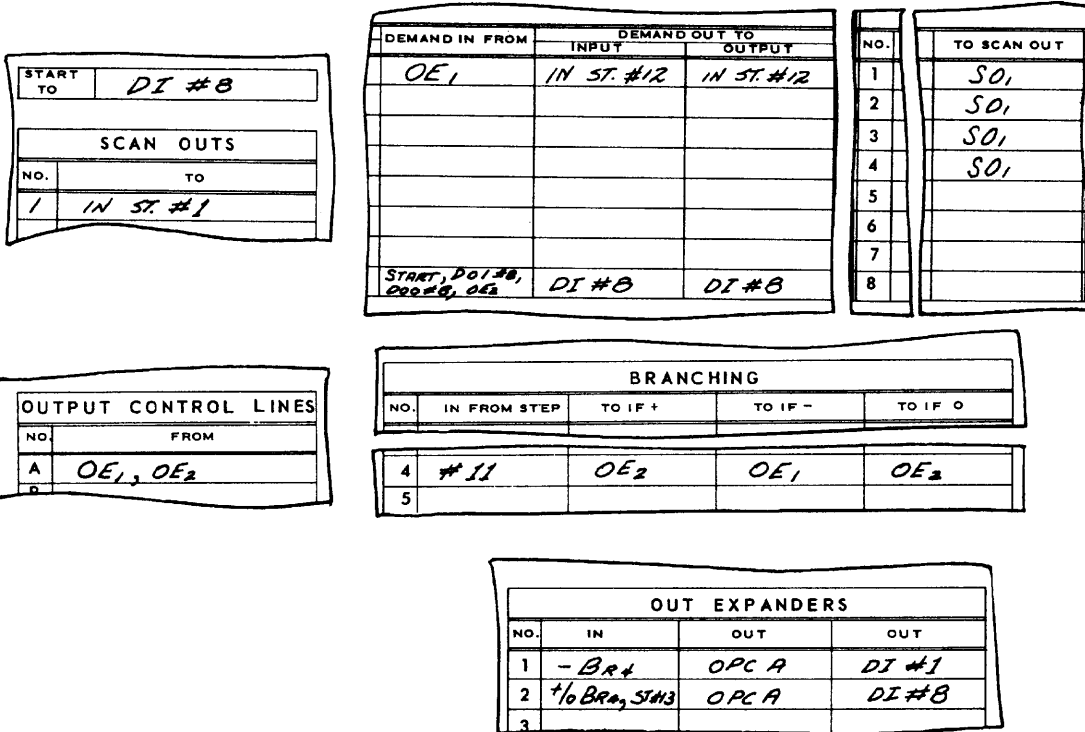 START TO DI #8
SCAN OUTS
NO. TO
1 IN ST. #1
DEMAND IN FROM DEMAND OUT TO
INPUT OUTPUT
OE1 IN ST. #12 IN ST. #12
START, DOI #8, DOO #8, OE2 DI #8 DI #8
NO. TO SCAN OUT
1 SO1
2 SO1
3 SO1
4 SO1
5
6
7
8
OUTPUT CONTROL LINES
NO. FROM
A OE1, OE2
BRANCHING
NO. IN FROM STEP TO IF + TO IF - TO IF O
4 #11 OE2 OE1 OE2
5
OUT EXPANDERS
NO. IN OUT OUT
1 -BR4 OPC A DI #1
2 +/o BR4, ST#13 OPC A DI #8
3